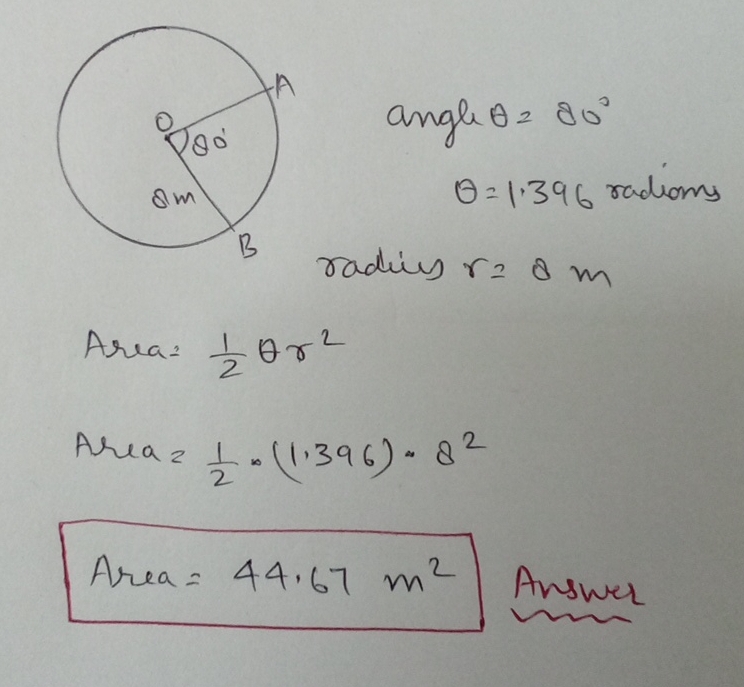 A
O
80°
8m
B
angle θ = 80°
θ = 1.396 radians
radius r = 8 m
Area = 1/2 θ r²
Area = 1/2 * (1.396) * 8²
Area = 44.67 m²
Answer